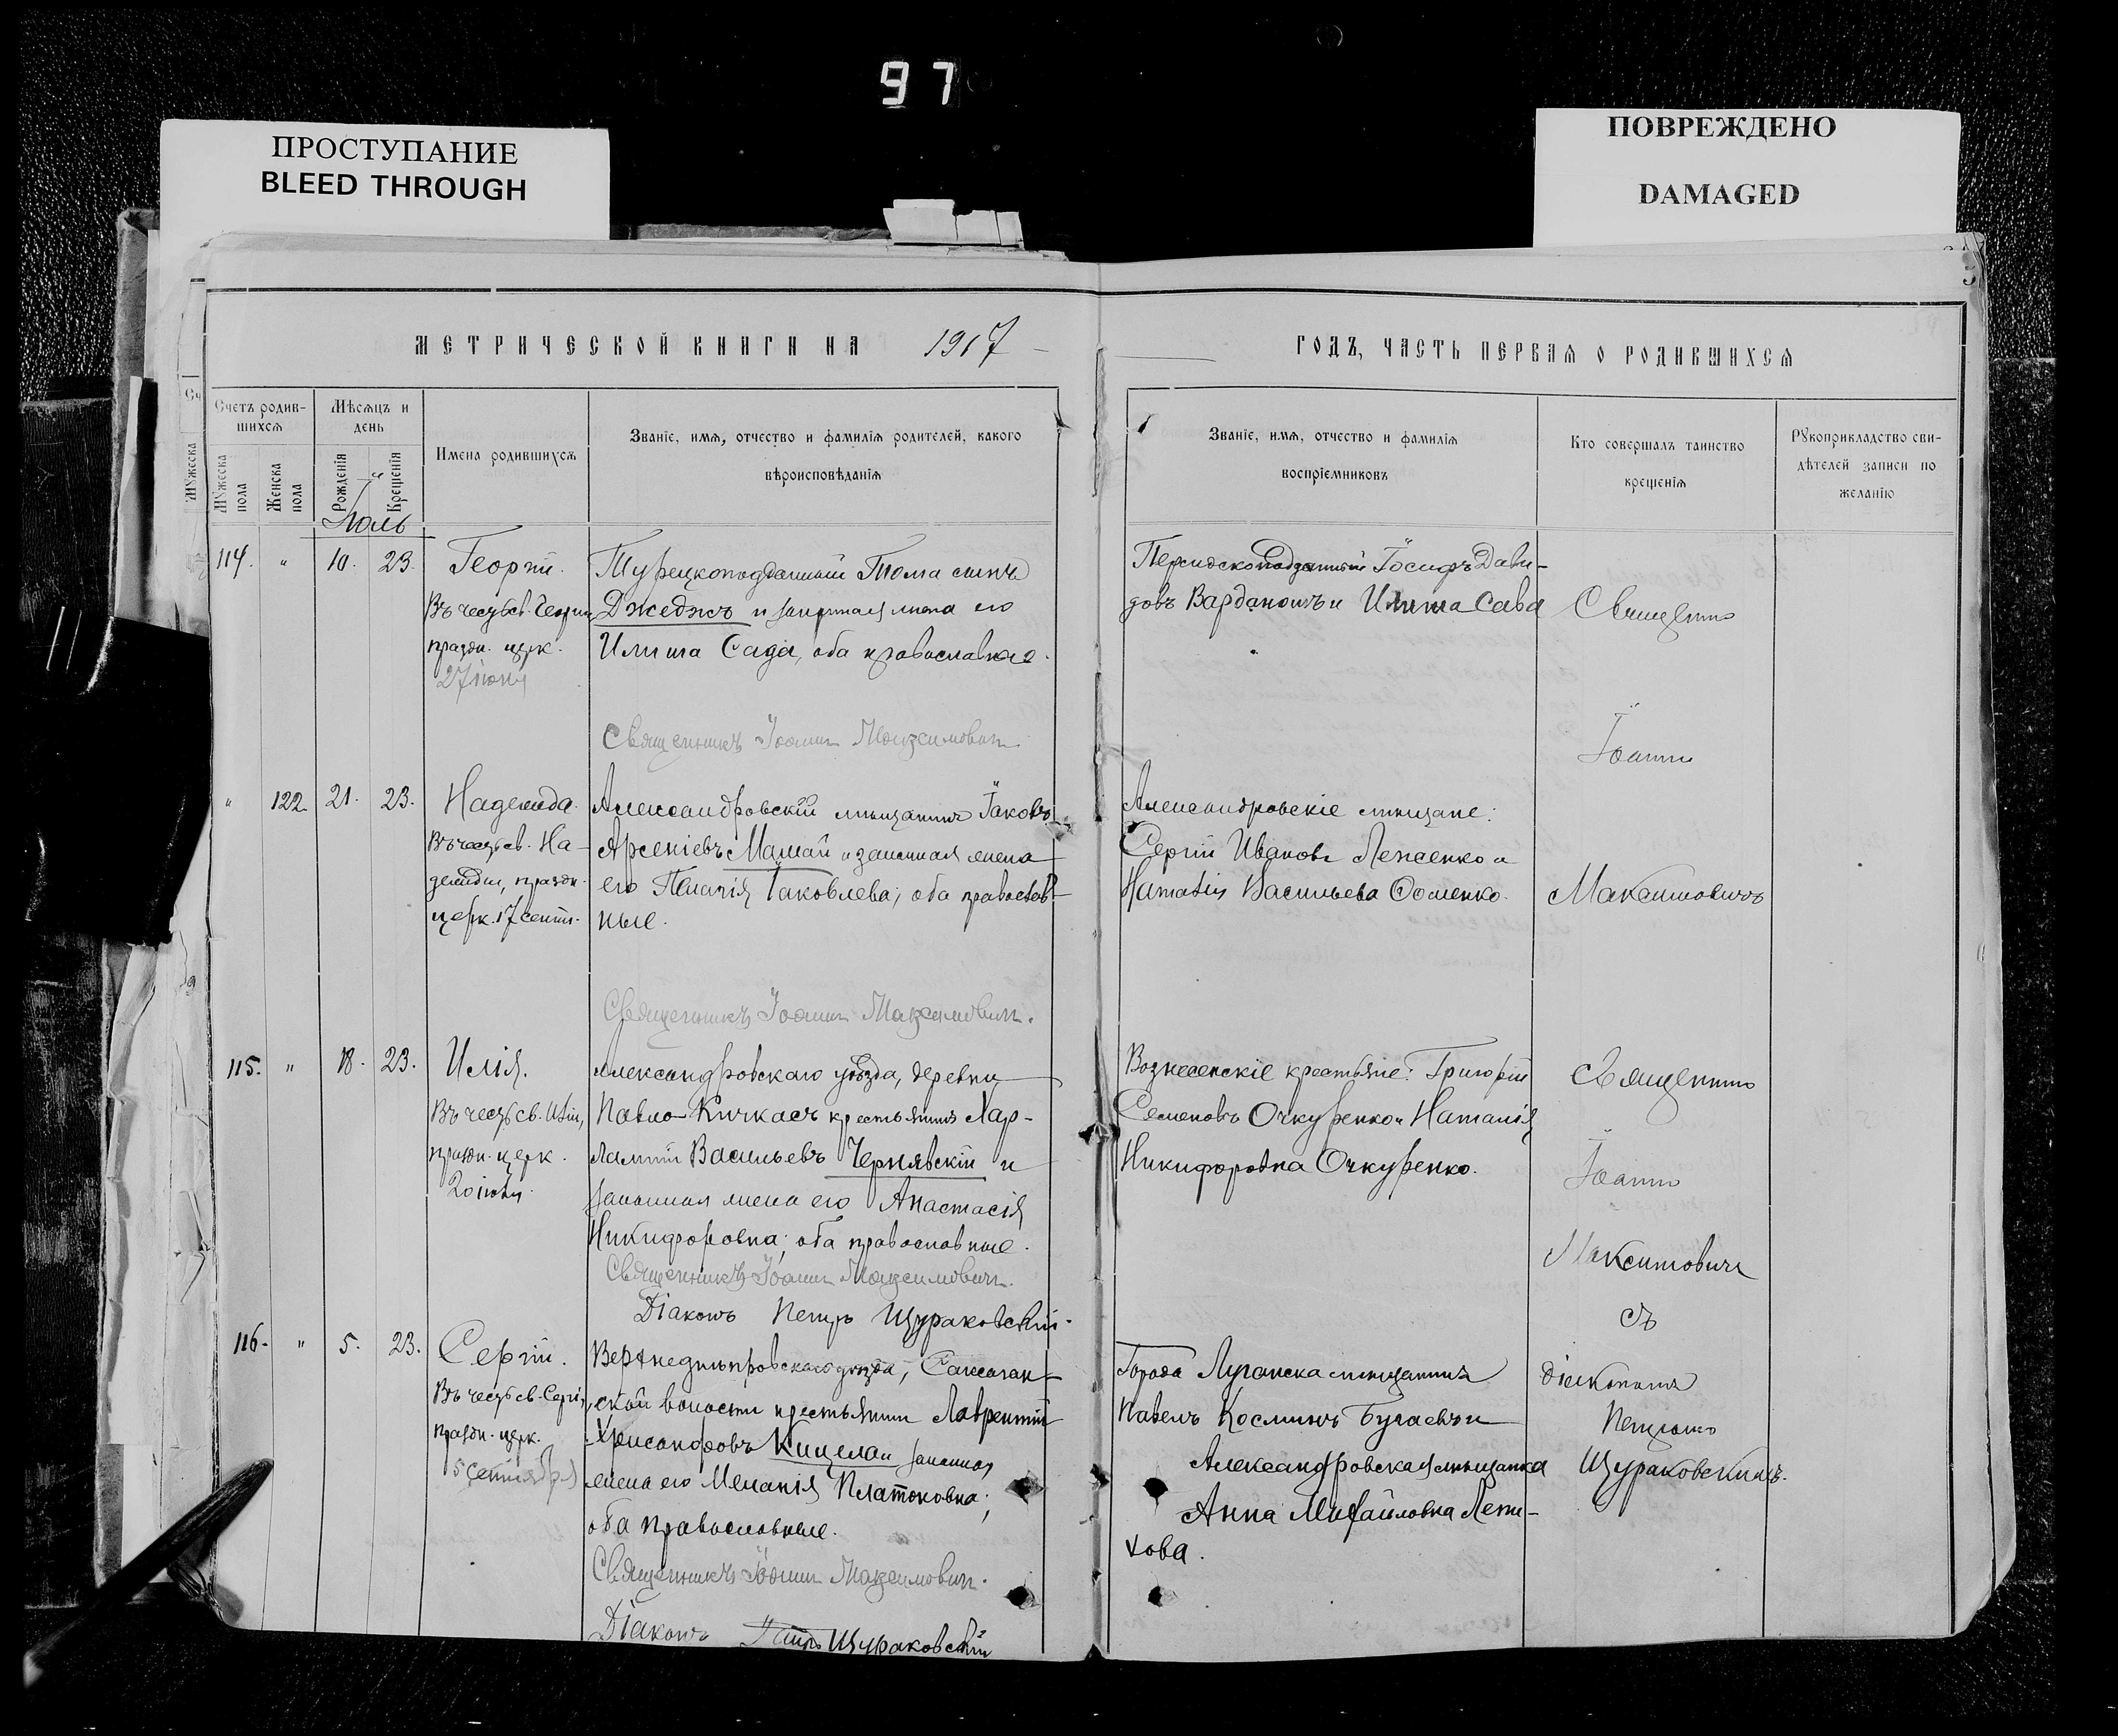 97
ПРОСТУПАНИЕ
BLEED THROUGH
ПОВРЕЖДЕНО
DAMAGED
МЕТРИЧЕСКОЙ КНИГИ НА 1917
ГОДЪ, ЧАСТЬ ПЕРВАЯ О РОДИВШИХСЯ
Счетъ родив-
шихся
Мужеска пола
Женска пола
Мѣсяцъ и
день
Рожденія
Крещенія
Имена родившихся
Званіе, имя, отчество и фамилія родителей, какого
вѣроисповѣданія
Званіе, имя, отчество и фамилія
воспріемниковъ
Кто совершалъ таинство
крещенія
Рукоприкладство сви-
дѣтелей записи по
желанію
Іюль
114. " 10. 23. Георгій.
Въ честь св. Георгія
праздн. церк.
Турецкоподданный Тома сынъ
Джеджъ и законная жена его
Илиша Сада, оба православные.
Священникъ Іоаннъ Максимовичъ.
Персидскоподданный Іосифъ Дави-
довъ Вардановъ и Илиша Сава
Священникъ
Іоаннъ
Максимовичъ
" 122 21. 23. Надежда.
Въ честь св. На-
дежды, праздн.
церк. 17 сент.
Александровскій мѣщанинъ Іаковъ
Арсеніевъ Мамай и законная жена
его Пелагія Іаковлева; оба православ-
ные.
Священникъ Іоаннъ Максимовичъ.
Александровскіе мѣщане:
Сергій Ивановъ
Васильева
115. " 18. 23. Илія.
Въ честь св. Иліи,
праздн. церк.
20 іюля.
Александровскаго уѣзда, деревни
Павло-Кичкасъ крестьянинъ Хар-
лампій Васильевъ Чернявскій и
законная жена его Анастасія
Никифоровна; оба православные.
Священникъ Іоаннъ Максимовичъ.
Діаконъ Петръ Щураковскій.
Вознесенскіе крестьяне: Григорій
Семеновъ Очкуренко и Наталія
Никифоровна Очкуренко.
Священникъ
Іоаннъ
Максимовичъ
съ
116. " 5. 23. Сергій.
Въ честь св. Сергія,
праздн. церк.
5 сентября
Верхнеднѣпровскаго уѣзда, Саксаган-
ской волости крестьянинъ Лаврентій
Хрисанфовъ и законная
жена его Меланія Платоновна;
оба православные.
Священникъ Іоаннъ Максимовичъ.
Діаконъ Петръ Щураковскій
Города Луганска мѣщанинъ
Павелъ Косминъ Бугаевъ и
Александровская мѣщанка
Анна Михайловна
діакономъ
Петромъ
Щураковскимъ.